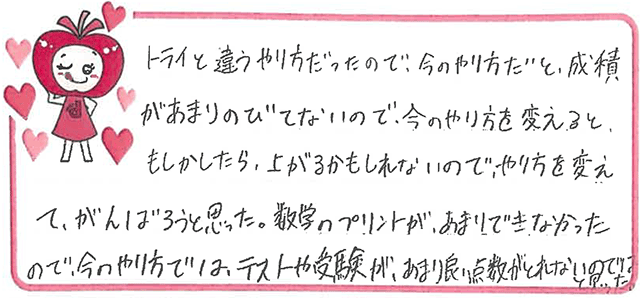 トライと違うやり方だったので、今のやり方だと、成積
があまりのびてないので、今のやり方を変えると、
もしかしたら、上がるかもしれないので、やり方を変え
て、がんばろうと思った。数学のプリントが、あまりできなかった
ので、今のやり方では、テストや受験が、あまり良い点数がとれないのでは
と思った。